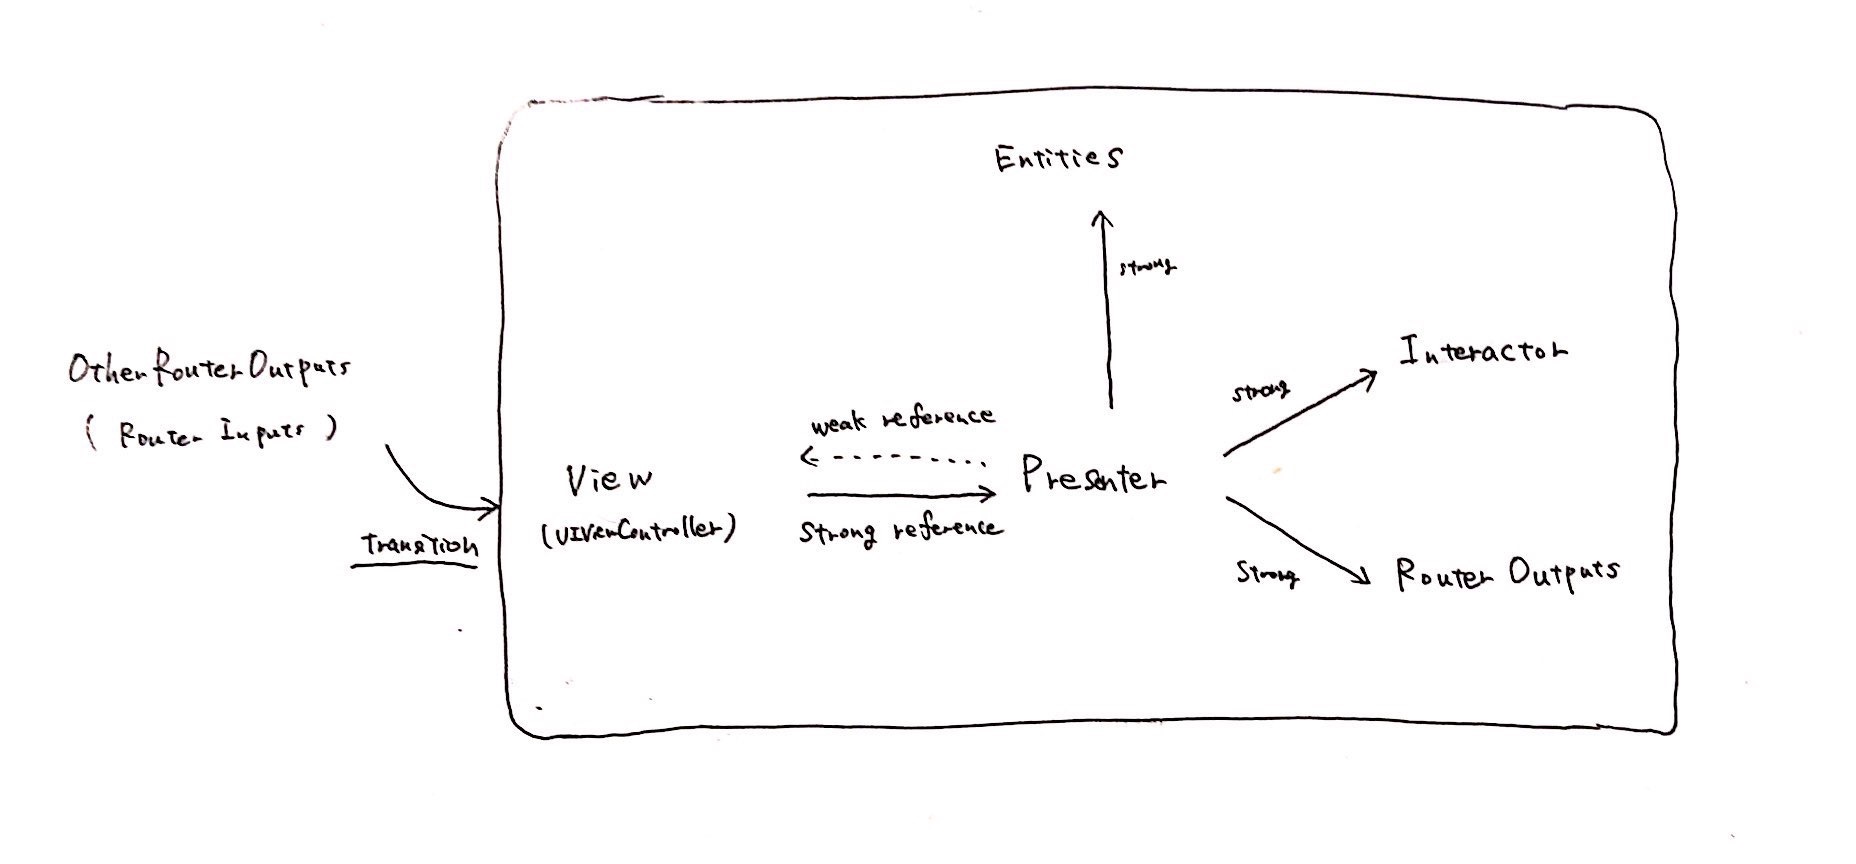 Entities
strong
Interactor
strong
OtherRouterOutputs
( Router Inputs )
weak reference
View
Presenter
(UIViewController)
Strong reference
Transition
Strong
Router Outputs